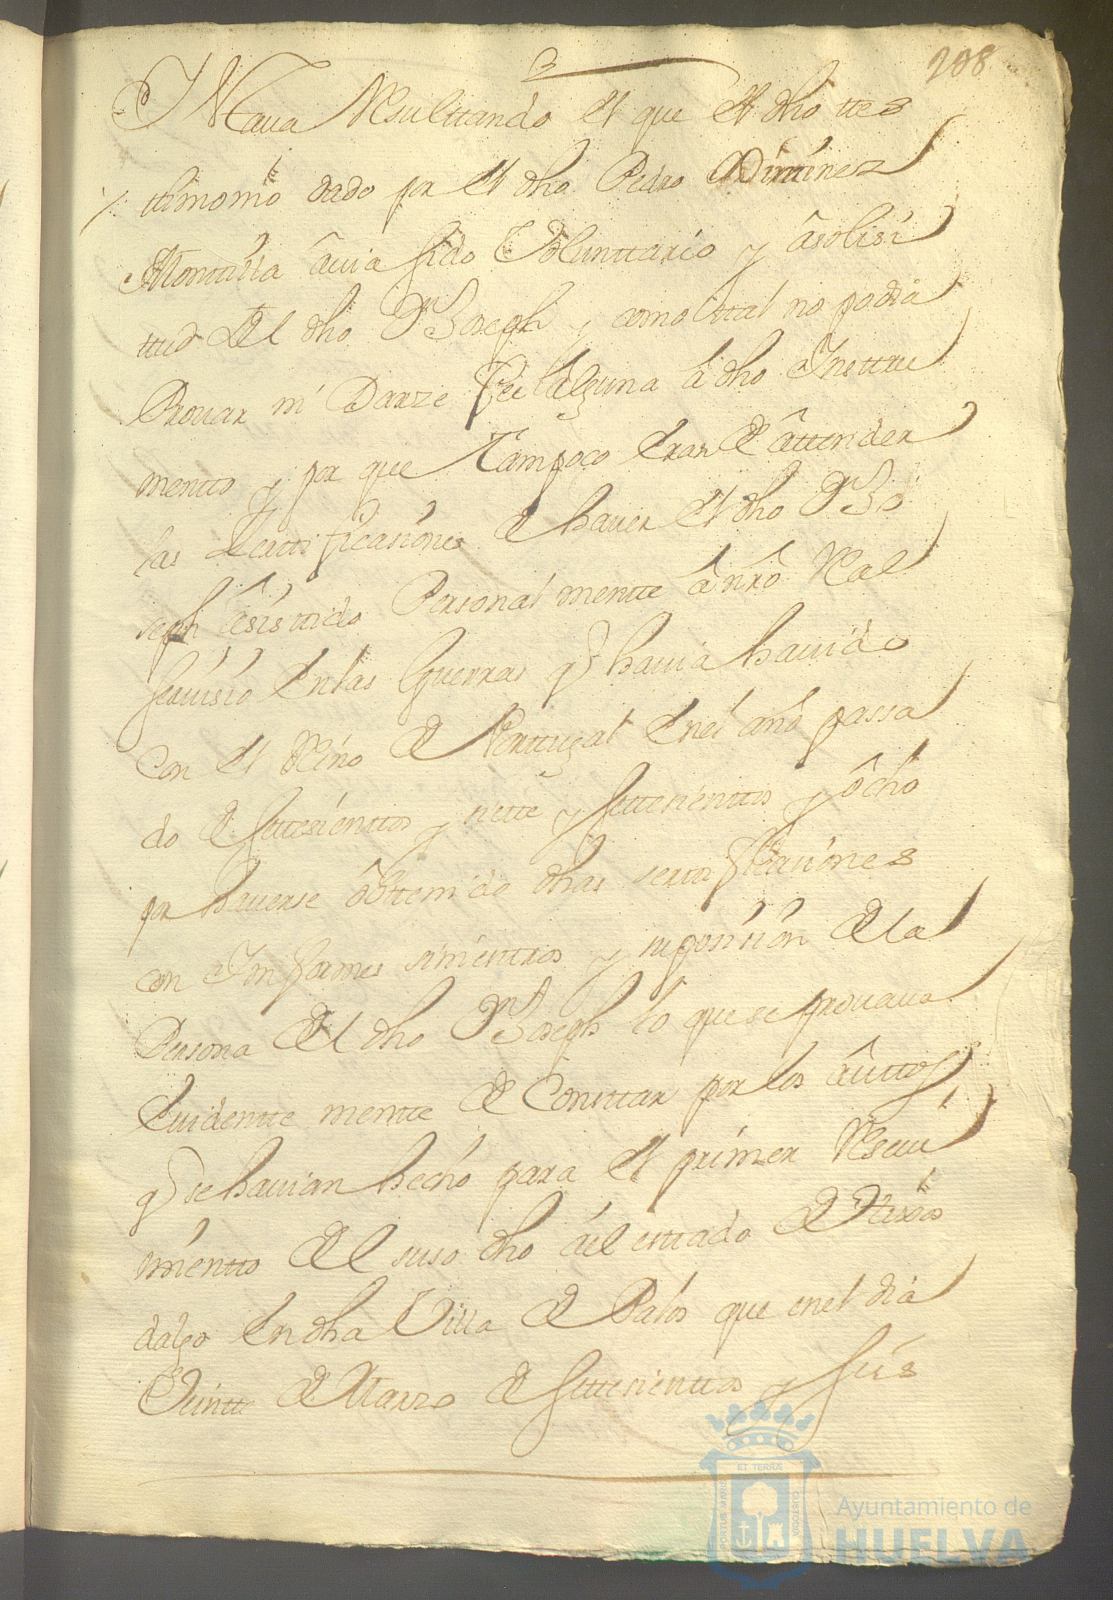 208
maua Resulttando el que el dho tes
ttimonio dado por el dho Pedro Ximinez
Montilla âuia sido Voluntario y âsolisi
ttud del dho Dn Joseph y como ttal no podia
Prouar ni Darze fee alguna â dho Ynsttru
mentto y por que Tampoco eran de âttender
las Certtificasiones de hauer el dho Dn Jo
seph âsisttido Personalmentte â nrô Real
seruisio en las Guerras q hauia hauido
con el Reino de Porttugal en el año passa
do de settesienttos y siette y settesienttos y ôcho
por hauerse ôbttenido dhas serttificasiones
con Ynformes siniestros y suposision de la
Persona del dho Dn Joseph lo que se prouaua
Euidentte mentte de Consttar por los âuttos
q se hauian hecho para el primer Resiui
mientto del suso dho âel esttado de Hixos
dalgo en dha Villa de Palos que en el dia
Veintte de Marzo de settesienttos y seis
PORTUS MARIS
ET TERRÆ
CUSTODIA
Ayuntamiento de
HUELVA